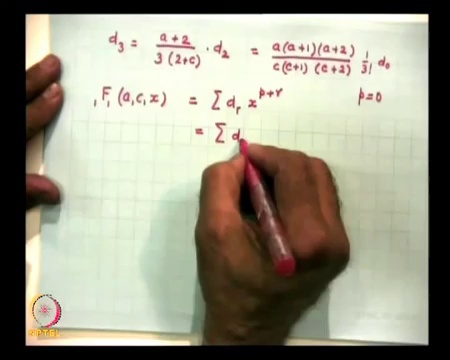 d₃ = a+2 / 3(2+c) · d₂ = a(a+1)(a+2) / c(c+1)(c+2) 1/3! d₀
₁F₁(a,c,x) = Σ dᵣ x^(p+r) p=0
= Σ d
NPTEL